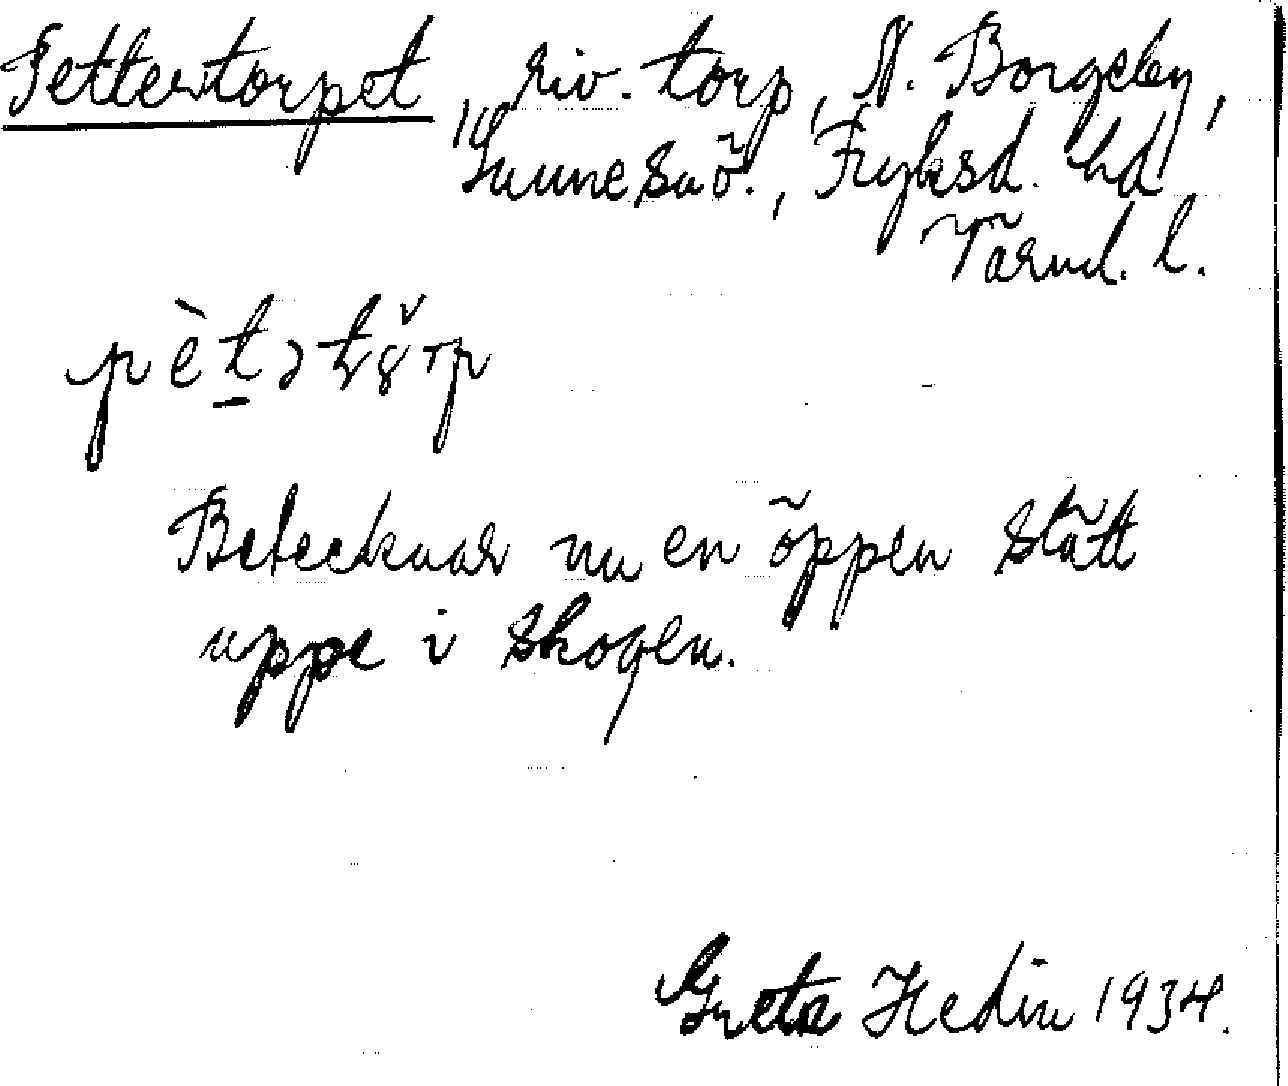 Pettertorpet, riv. torp, N. Borgeby,
Sunne sn ö., Fryksd. hd,
Värml. l.
pètət8̌rp
Betecknar nu en öppen slätt
uppe i skogen.
Greta Hedin 1934.